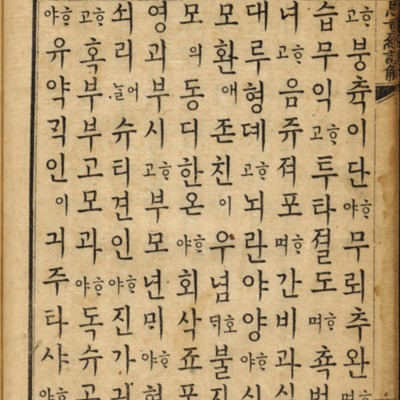 ᄒᆞ고붕축이단ᄒᆞ야무뢰추완ᄒᆞ며
습무익ᄒᆞ고투타졀도ᄒᆞ며쵹범
녀ᄒᆞ고음쥬져포ᄒᆞ며간비과실
대루형뎨ᄒᆞ고뇌란야양ᄒᆞ야
모환애존친이우념불지
모의동디한온ᄒᆞ야회삭죠포
영괴부시ᄒᆞ고부모년미ᄒᆞ야형
쇠리어늘슈티견인ᄒᆞ야진가귀
ᄒᆞ고혹부부고모과ᄒᆞ야독슈고
ᄒᆞ야유약긱인이긔주타샤ᄒᆞ야